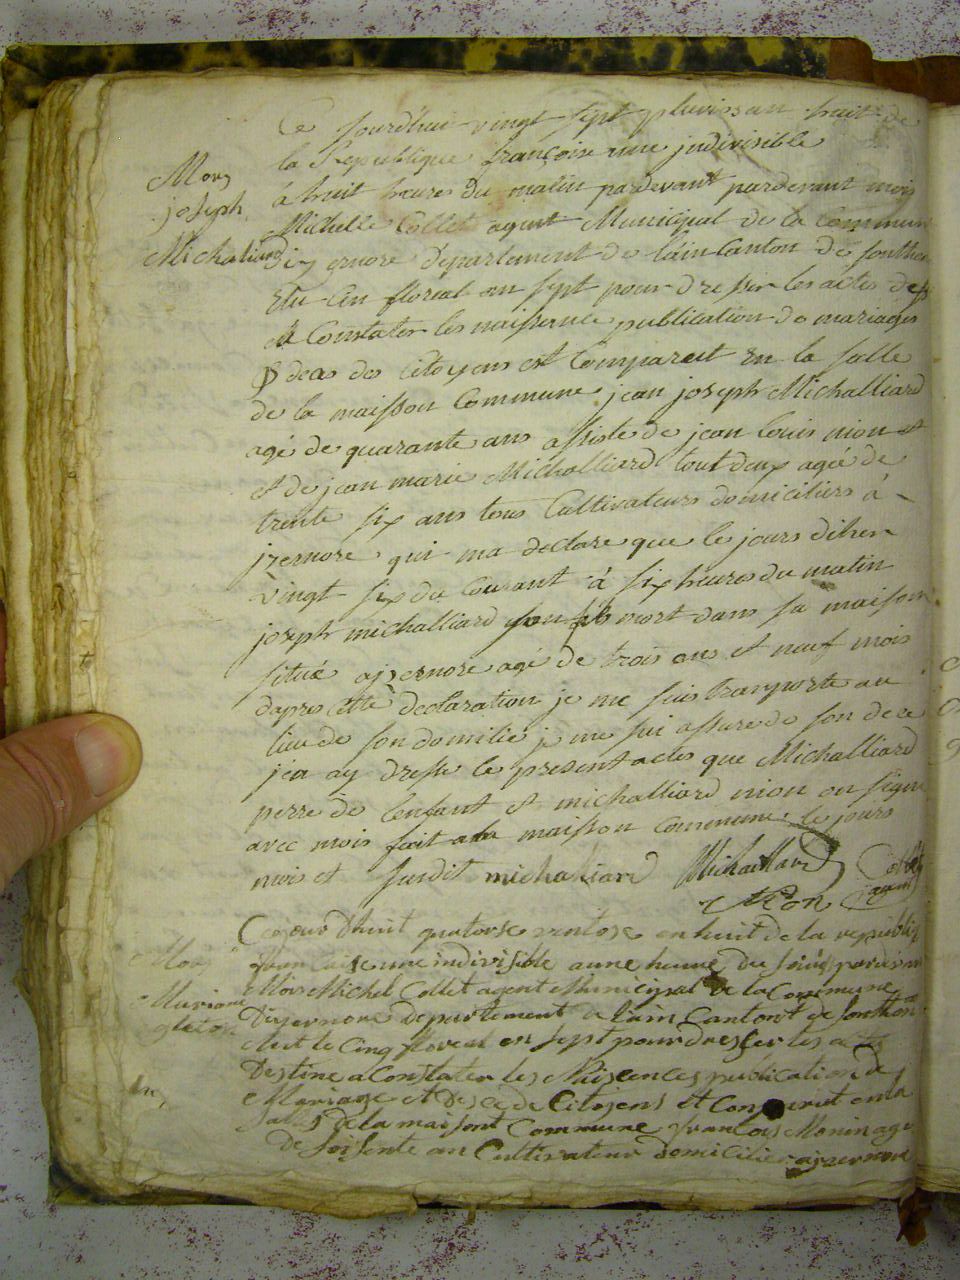 Ce jourdhui vingt sept pluviosan huit de
la Republique françoise une jndivisible
Mors
joseph
Michaliard
à huit heures du matin pardevant pardevant mois
Michelle Collet agent Municipal de la Commune
dizernore departement de lain Canton de sontho
Elu Cin floreal an sept pour dresser les actes des
& Constater les naissance publication de mariages
& deces des Citoyens est Comparut En la salle
de la maisson Commune jean joseph Michalliard
agé de quarante ans assiste de jean louis nion et
et de jean marie Michalliard tout deux agée de
trente six ans tous Cultivateurs domiciliers à
jzernore qui ma declare que le jours diher
vingt six du Courant à six heures du matin
joseph michalliard son fils mort dans sa maison
situé ajzernore agé de trois ans et neuf mois
dapres cette declaration je me suis transporte au
lieu de son domilie je me sui assure de son dece
jen ay dresse le present actes que Michalliard
perre de lenfant et michalliard nion on signe
avec mois fait a la maisson Commune le jours
mois et susdit michaliard Michalliard Collet
Nion agent
Mors
Mariane
gleton
Cejourdhuit quatorse ventose en huit de la republi
francaise une indivisible aune heure du soire pardevan
Mois Michel Collet agent Municypal de la Commune
Dizernore departement de lain Canton de Sonthon
elut le Cinq floreal en sept pour dresser les actes
Destine a Constater les Naisences publication de
Mariage et Desede de Citoyens et Comparut en la
Salle de la maisont Commune francois Monin age
de soisente an Cultivateur domicilier ajzernore